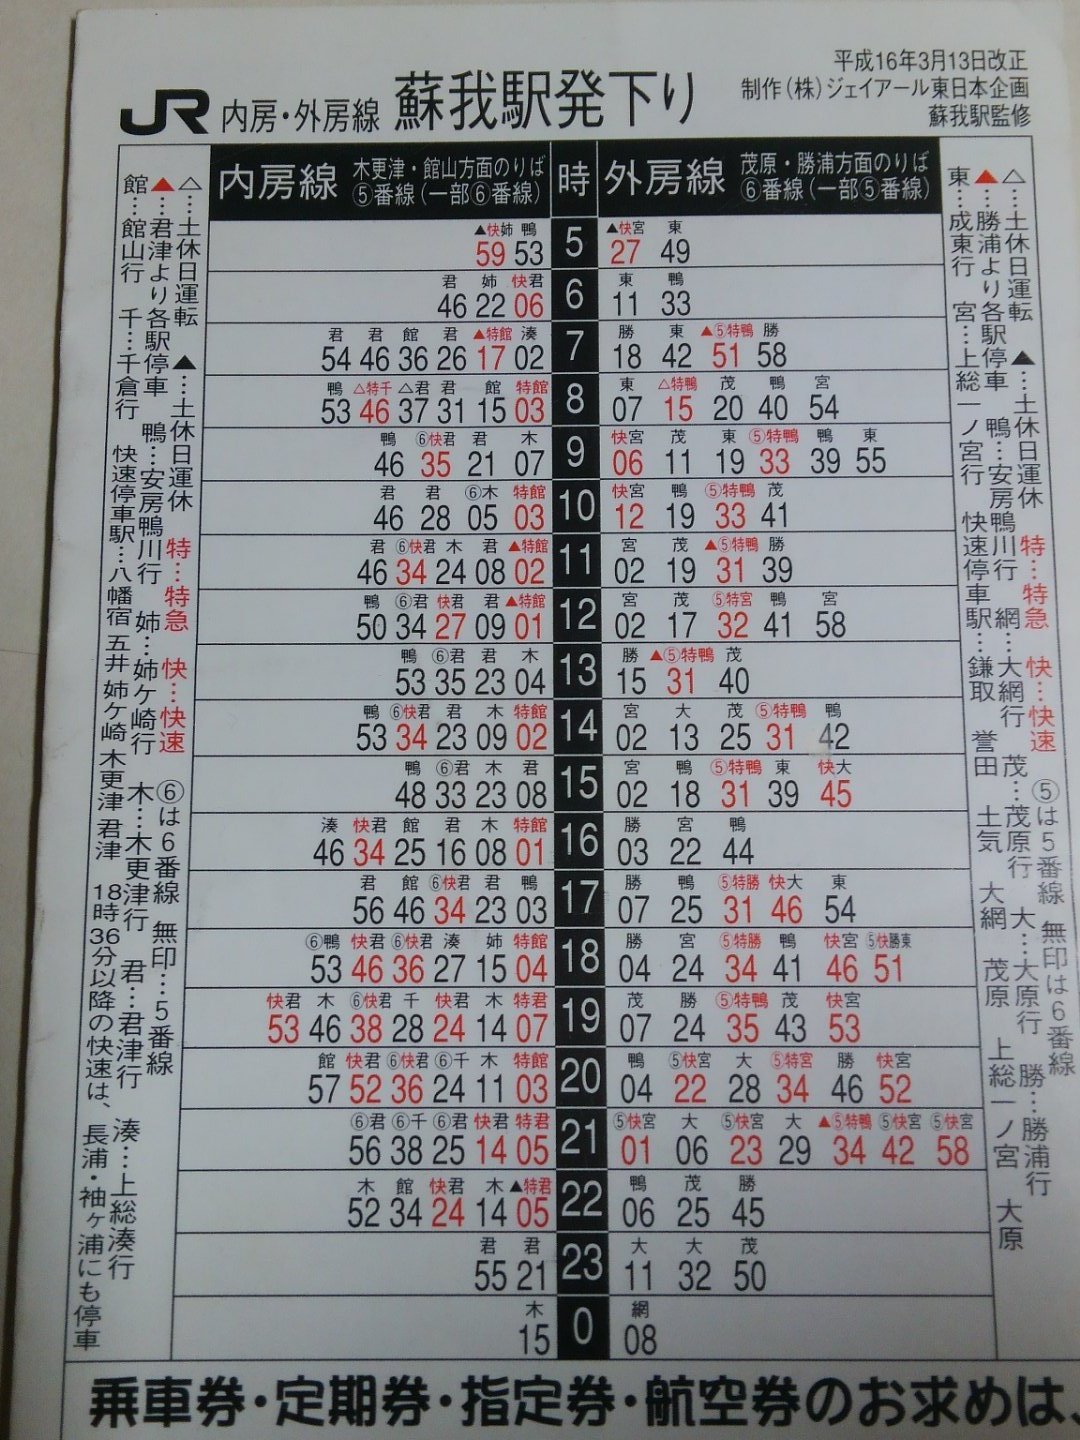 平成16年3月13日改正
制作(株)ジェイアール東日本企画
蘇我駅監修
JR 内房・外房線 蘇我駅発下り
内房線 木更津・館山方面のりば ⑤番線(一部⑥番線) 時 外房線 茂原・勝浦方面のりば ⑥番線(一部⑤番線)
▲快姉 鴨 ▲快宮 東
59 53 5 27 49
君 姉 快君 東 鴨
46 22 06 6 11 33
君 君 館 君 ▲特館 湊 勝 東 ▲⑤特鴨 勝
54 46 36 26 17 02 7 18 42 51 58
鴨 △特千 △君 君 館 特館 東 △特鴨 茂 鴨 宮
53 46 37 31 15 03 8 07 15 20 40 54
鴨 ⑥快君 君 木 快宮 茂 東 ⑤特鴨 鴨 東
46 35 21 07 9 06 11 19 33 39 55
君 君 ⑥木 特館 快宮 鴨 ⑤特鴨 茂
46 28 05 03 10 12 19 33 41
君 ⑥快君 木 君 ▲特館 宮 茂 ▲⑤特鴨 勝
46 34 24 08 02 11 02 19 31 39
鴨 ⑥君 快君 君 ▲特館 宮 茂 ⑤特宮 鴨 宮
50 34 27 09 01 12 02 17 32 41 58
鴨 ⑥君 君 木 勝 ▲⑤特鴨 茂
53 35 23 04 13 15 31 40
鴨 ⑥快君 君 木 特館 宮 大 茂 ⑤特鴨 鴨
53 34 23 09 02 14 02 13 25 31 42
鴨 ⑥君 木 君 宮 鴨 ⑤特鴨 東 快大
48 33 23 08 15 02 18 31 39 45
湊 快君 館 君 木 特館 勝 宮 鴨
46 34 25 16 08 01 16 03 22 44
君 館 ⑥快君 君 鴨 勝 鴨 ⑤特勝 快大 東
56 46 34 23 03 17 07 25 31 46 54
⑥鴨 快君 ⑥快君 湊 姉 特館 勝 宮 ⑤特勝 鴨 快宮 ⑤快勝東
53 46 36 27 15 04 18 04 24 34 41 46 51
快君 木 ⑥快君 千 快君 木 特君 茂 勝 ⑤特鴨 茂 快宮
53 46 38 28 24 14 07 19 07 24 35 43 53
館 快君 ⑥快君 ⑥千 木 特館 鴨 ⑤快宮 大 ⑤特宮 勝 快宮
57 52 36 24 11 03 20 04 22 28 34 46 52
⑥君 ⑥千 ⑥君 快君 特君 ⑤快宮 大 ⑤快宮 大 ▲⑤特鴨 ⑤快宮 ⑤快宮
56 38 25 14 05 21 01 06 23 29 34 42 58
木 館 快君 木 ▲特君 鴨 茂 勝
52 34 24 14 05 22 06 25 45
君 君 大 大 茂
55 21 23 11 32 50
木 網
15 0 08
△…土休日運転 ▲…土休日運休 特…特急 快…快速 ⑥は6番線 無印…5番線
▲…君津より各駅停車 鴨…安房鴨川行 姉…姉ケ崎行 木…木更津行 君…君津行 湊…上総湊行
館…館山行 千…千倉行 快速停車駅…八幡宿 五井 姉ケ崎 木更津 君津 18時36分以降の快速は、長浦・袖ヶ浦にも停車
△…土休日運転 ▲…土休日運休 特…特急 快…快速 ⑤は5番線 無印は6番線
▲…勝浦より各駅停車 鴨…安房鴨川行 網…大網行 茂…茂原行 大…大原行 勝…勝浦行
東…成東行 宮…上総一ノ宮行 快速停車駅…鎌取 誉田 土気 大網 茂原 上総一ノ宮 大原
乗車券・定期券・指定券・航空券のお求めは、